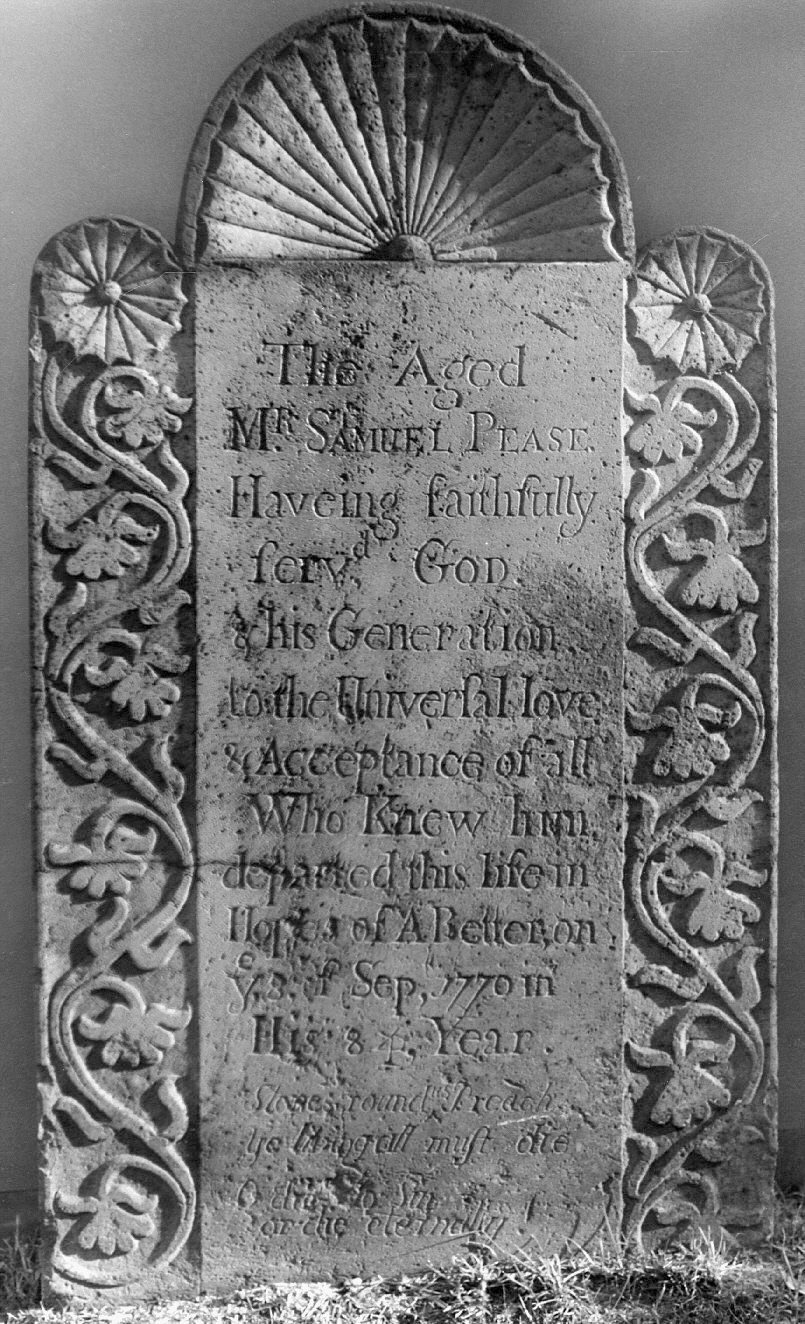 The Aged
Mᴿ. SAMUEL PEASE.
Haveing faithfully
ſervᵈ. GOD
& his Generation,
to the Univerſal love
& Acceptance of all
Who Knew him,
departed this life in
Hopes of A Better, on
yᵉ. 8. of Sep, 1770 in
His 84, Year.
Stones round Preach
ye living all muſt die
O to Sin
or die eternally